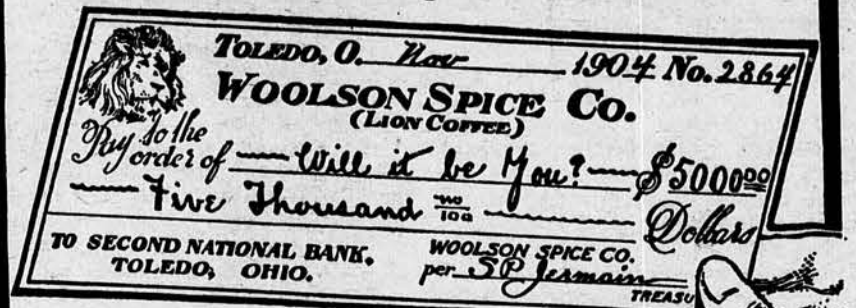 TOLEDO, O. Nov 1904 No. 2864
WOOLSON SPICE CO.
(LION COFFEE)
Pay to the
order of Will it be You? $5000 00
Five Thousand no/100 Dollars
TO SECOND NATIONAL BANK, WOOLSON SPICE CO.
TOLEDO, OHIO. per S.P. Jermain
TREASU